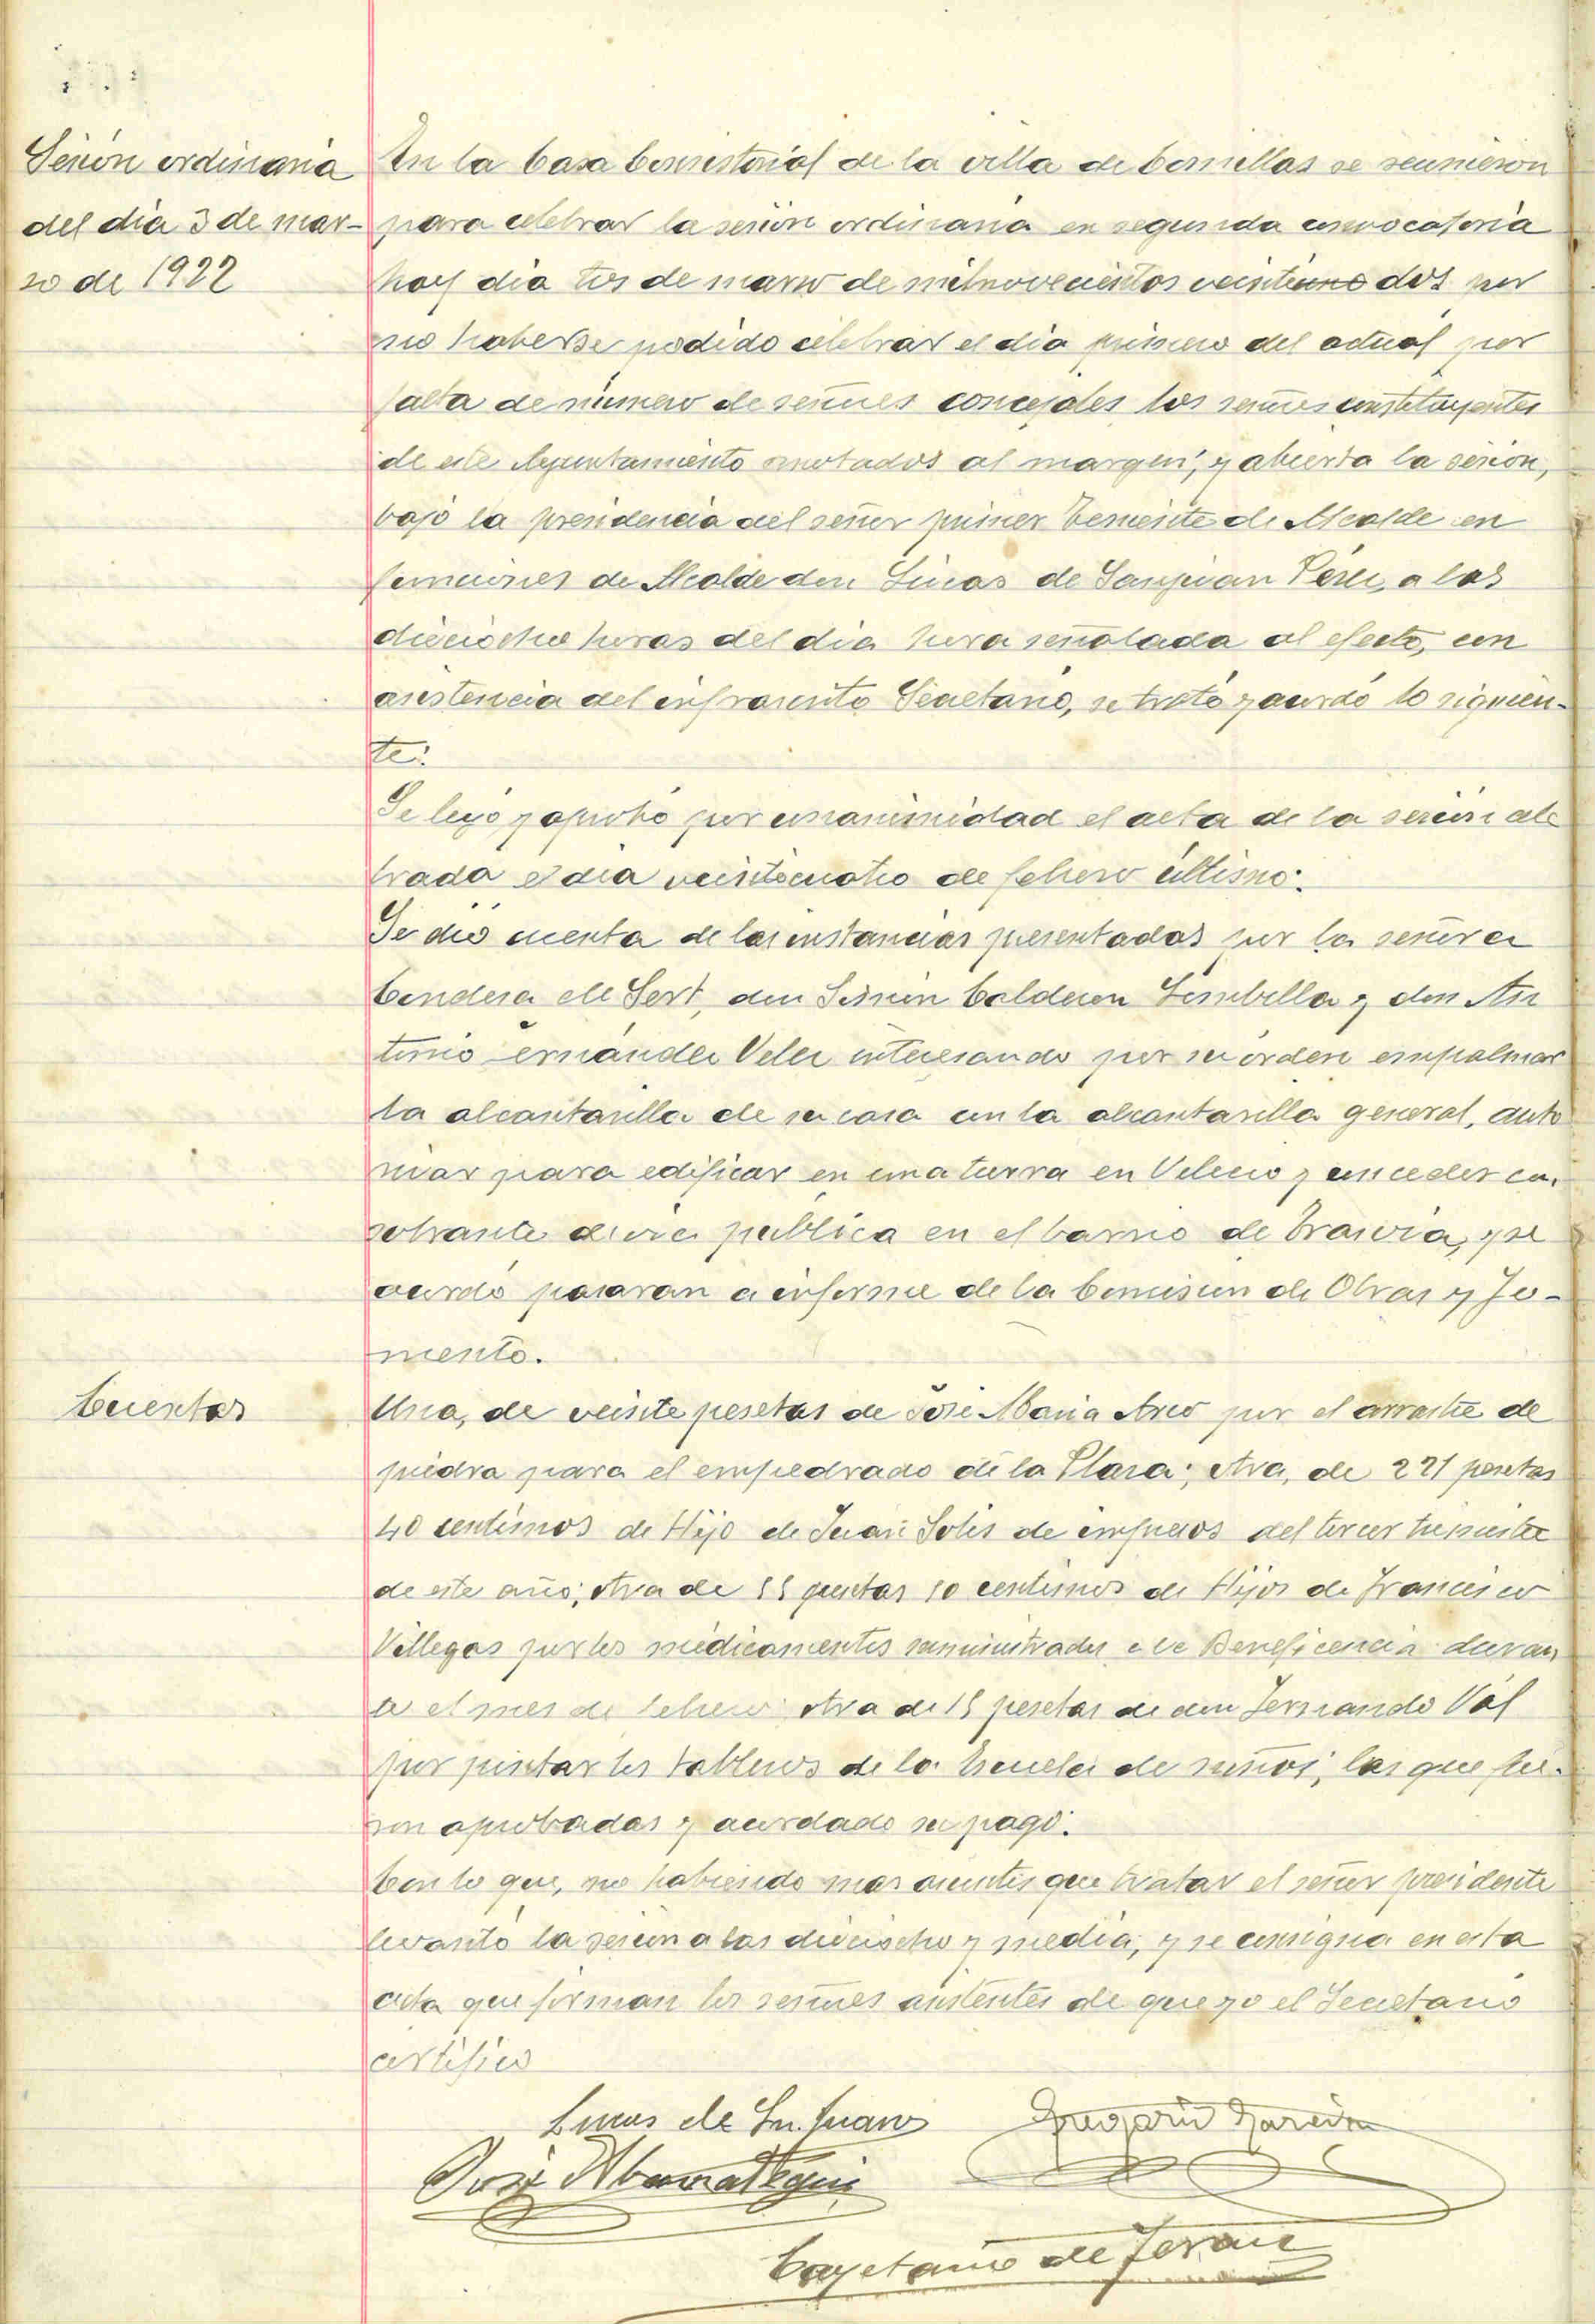 Sesión ordinaria
del dia 3 de mar-
zo de 1922
En la Casa Consistorial de la villa de Comillas se reunieron
para celebrar la sesión ordinaria en segunda convocatoria
hoy dia tres de marzo de milnovecientos veintiuno dos por
no haberse podido celebrar el dia primero del actual por
falta de número de señores concejales los señores constituyentes
de este Ayuntamiento anotados al margen, y abierta la sesión,
bajo la presidencia del señor primer Teniente de Alcalde en
funciones de Alcalde don Lucas de Sanjuan Pérez, a las
dieciocho horas del dia hora señalada al efecto, con
asistencia del infrascrito Secretario, se trató y acordó lo siguien-
te:
Se leyó y aprobó por unanimidad el acta de la sesión cele
brada el dia veinticuatro de febrero último.
Se dió cuenta de las instancias presentadas por la señora
Condesa de Sert, don Calderon y don An
tonio ernández Velez interesando por su orden empalmar
la alcantarilla de su casa con la alcantarilla general, auto
rizar para edificar en una tierra en Velecio y conceder un
sobrante de via pública en el barrio de Trasvia, y se
acordó pasaran a informe de la Comisión de Obras y Fo-
mento.
Cuentas
Una, de veinte pesetas de José Maria por el arrastre de
piedra para el empedrado de la Plaza; otra, de 221 pesetas
40 centimos de Hijo de Juan Solis de impresos del tercer trimestre
de este año; otra de pesetas 10 centimos de Hijos de Francisco
Villegas por los medicamentos suministrados a la Beneficencia duran
te el mes de febrero otra de 15 pesetas de don Fernando Val
por pintar los tableros de la Escuela de niños, las que fue-
ron aprobadas y acordado su pago.
Con lo que, no habiendo mas asuntos que tratar el señor presidente
levantó la sesión a las dieciocho y media, y se consigna en esta
acta que firman los señores asistentes de que yo el Secretario
certifico
Lucas de Sn. Juan Gregorio Garcia
José
Cayetano de Teran